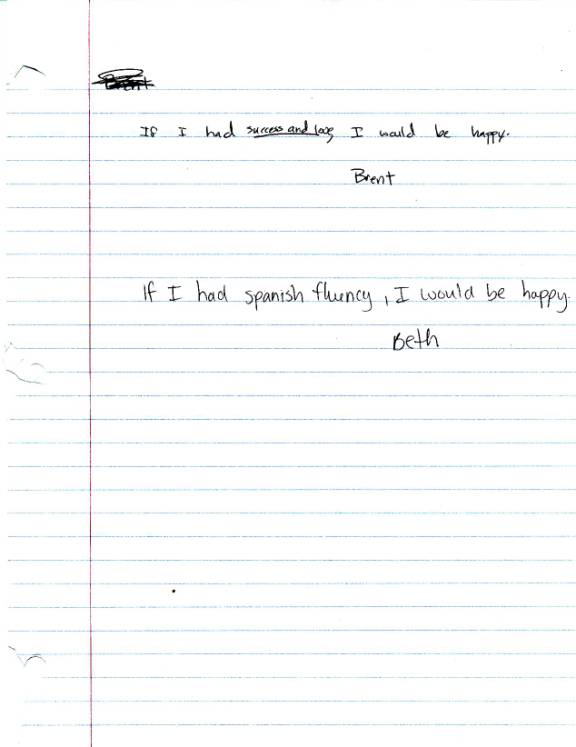 Brent
If I had success and love, I would be happy.
Brent
If I had spanish fluency, I would be happy.
Beth